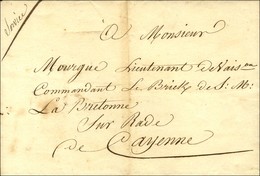 Service
A Monsieur
Mourgue Lieutenant de Vais.au
Commandant Le Brick de S: M:
La Bretonne
Sur Rade
de Cayenne